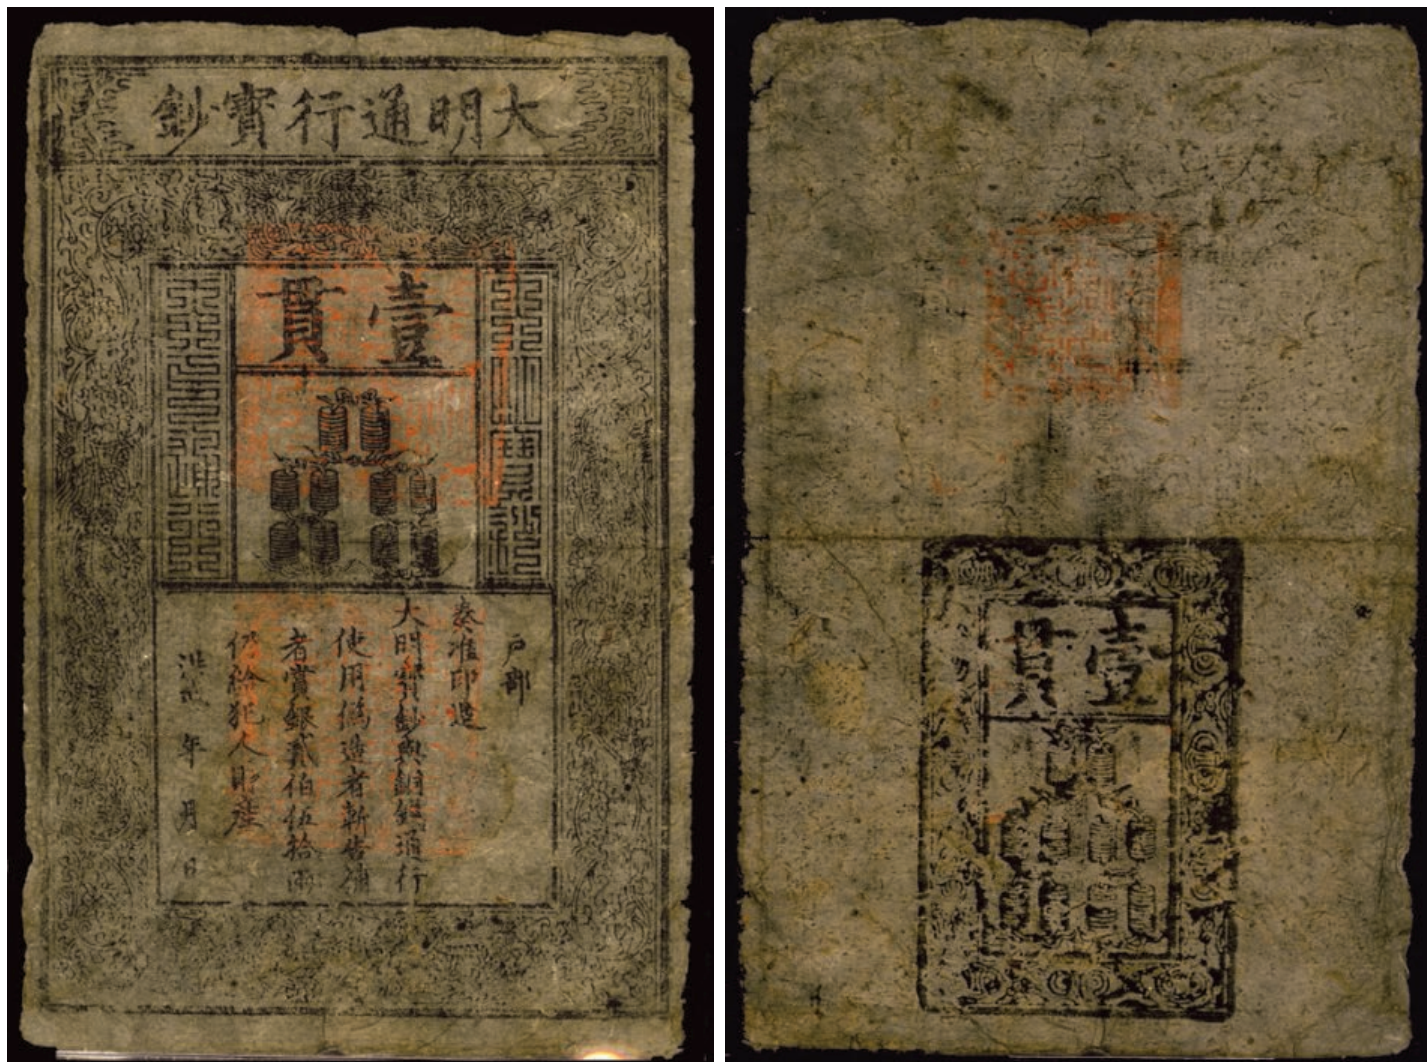 大明通行寶鈔
壹貫
大明寶鈔
天下通行
户部
奏准印造
大明寶鈔與銅錢通行
使用僞造者斬告捕
者賞銀貳伯伍拾兩
仍給犯人財產
洪武 年 月 日
壹貫